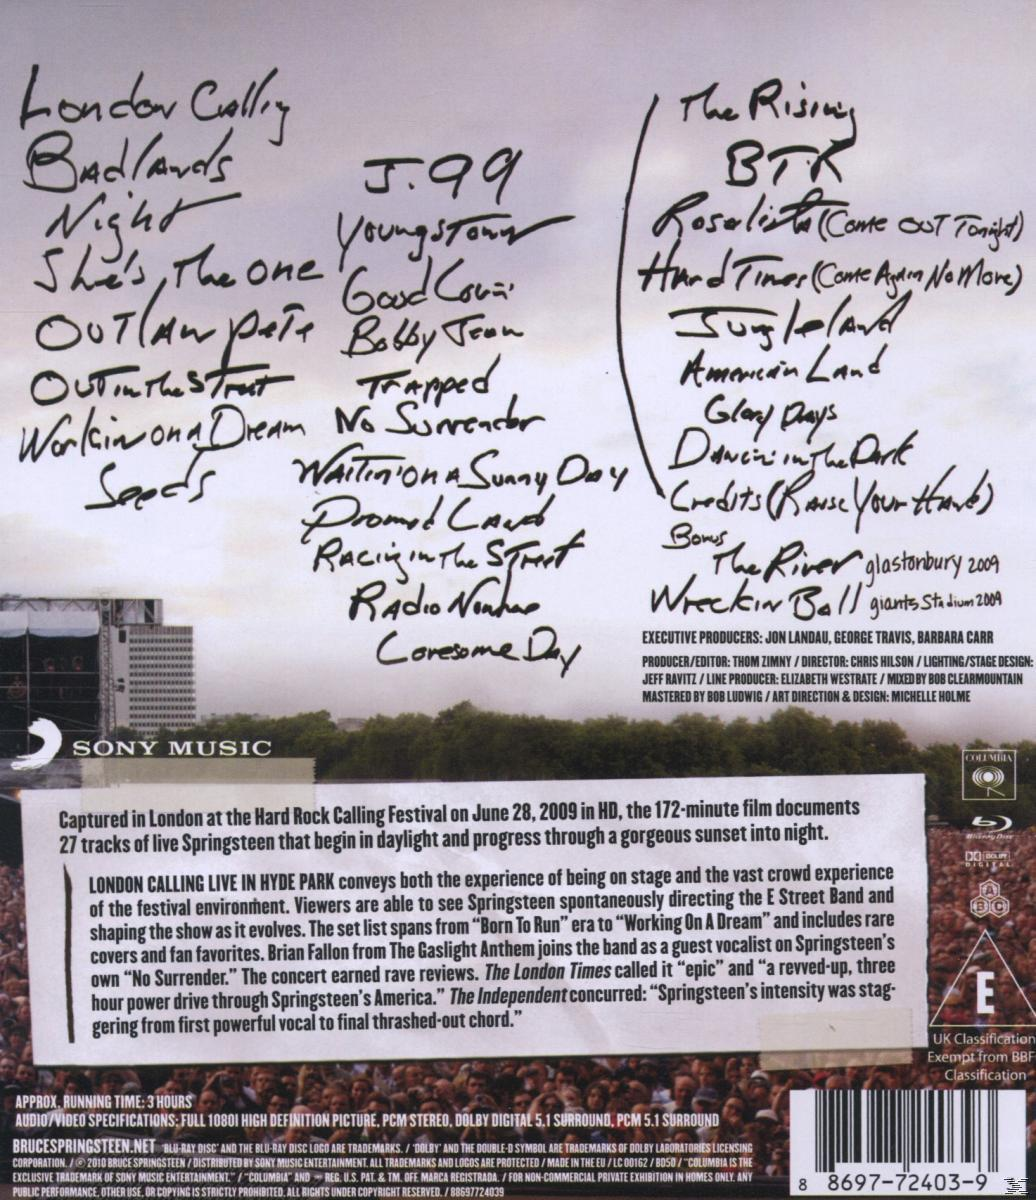 London Callig
Badlands
Night
She's The One
Outlaw Pete
Out in the Street
Workin on a Dream
Seeds
J. 99
Youngstown
Good Lovin
Bobby Jean
Trapped
No Surrender
Waitin' on a Sunny Day
Promised Land
Racing in the Street
Radio Nowhere
Lonesome Day
The Rising
BTR
Rosalita (Come Out Tonight)
Hard Times (Come Again No More)
Jungleland
American Land
Glory Days
Dancin' in the Dark
Credits (Raise Your Hand)
Bonus
The River glastonbury 2009
Wreckin Ball giants Stadium 2009
EXECUTIVE PRODUCERS: JON LANDAU, GEORGE TRAVIS, BARBARA CARR
PRODUCER/EDITOR: THOM ZIMNY / DIRECTOR: CHRIS HILSON / LIGHTING/STAGE DESIGN:
JEFF RAVITZ / LINE PRODUCER: ELIZABETH WESTRATE / MIXED BY BOB CLEARMOUNTAIN
MASTERED BY BOB LUDWIG / ART DIRECTION & DESIGN: MICHELLE HOLME
SONY MUSIC
COLUMBIA
Blu-ray Disc
DOLBY
DIGITAL
A
B C
Captured in London at the Hard Rock Calling Festival on June 28, 2009 in HD, the 172-minute film documents
27 tracks of live Springsteen that begin in daylight and progress through a gorgeous sunset into night.
LONDON CALLING LIVE IN HYDE PARK conveys both the experience of being on stage and the vast crowd experience
of the festival environment. Viewers are able to see Springsteen spontaneously directing the E Street Band and
shaping the show as it evolves. The set list spans from "Born To Run" era to "Working On A Dream" and includes rare
covers and fan favorites. Brian Fallon from The Gaslight Anthem joins the band as a guest vocalist on Springsteen's
own "No Surrender." The concert earned rave reviews. The London Times called it "epic" and "a revved-up, three
hour power drive through Springsteen's America." The Independent concurred: "Springsteen's intensity was stag-
gering from first powerful vocal to final thrashed-out chord."
E
UK Classification
Exempt from BBF
Classification
APPROX. RUNNING TIME: 3 HOURS
AUDIO/VIDEO SPECIFICATIONS: FULL 1080I HIGH DEFINITION PICTURE, PCM STEREO, DOLBY DIGITAL 5.1 SURROUND, PCM 5.1 SURROUND
BRUCESPRINGSTEEN.NET 'BLU-RAY DISC' AND THE BLU-RAY DISC LOGO ARE TRADEMARKS. / 'DOLBY' AND THE DOUBLE-D SYMBOL ARE TRADEMARKS OF DOLBY LABORATORIES LICENSING
CORPORATION. / ℗ 2010 BRUCE SPRINGSTEEN / DISTRIBUTED BY SONY MUSIC ENTERTAINMENT. ALL TRADEMARKS AND LOGOS ARE PROTECTED / MADE IN THE EU / LC 00162 / BD50 / "COLUMBIA IS THE
EXCLUSIVE TRADEMARK OF SONY MUSIC ENTERTAINMENT." / "COLUMBIA" AND REG. U.S. PAT. & TM. OFF. MARCA REGISTRADA. / FOR NON-COMMERCIAL PRIVATE EXHIBITION IN HOMES ONLY. ANY
PUBLIC PERFORMANCE, OTHER USE, OR COPYING IS STRICTLY PROHIBITED. ALL RIGHTS UNDER COPYRIGHT RESERVED. / 88697724039
8 8697-72403-9